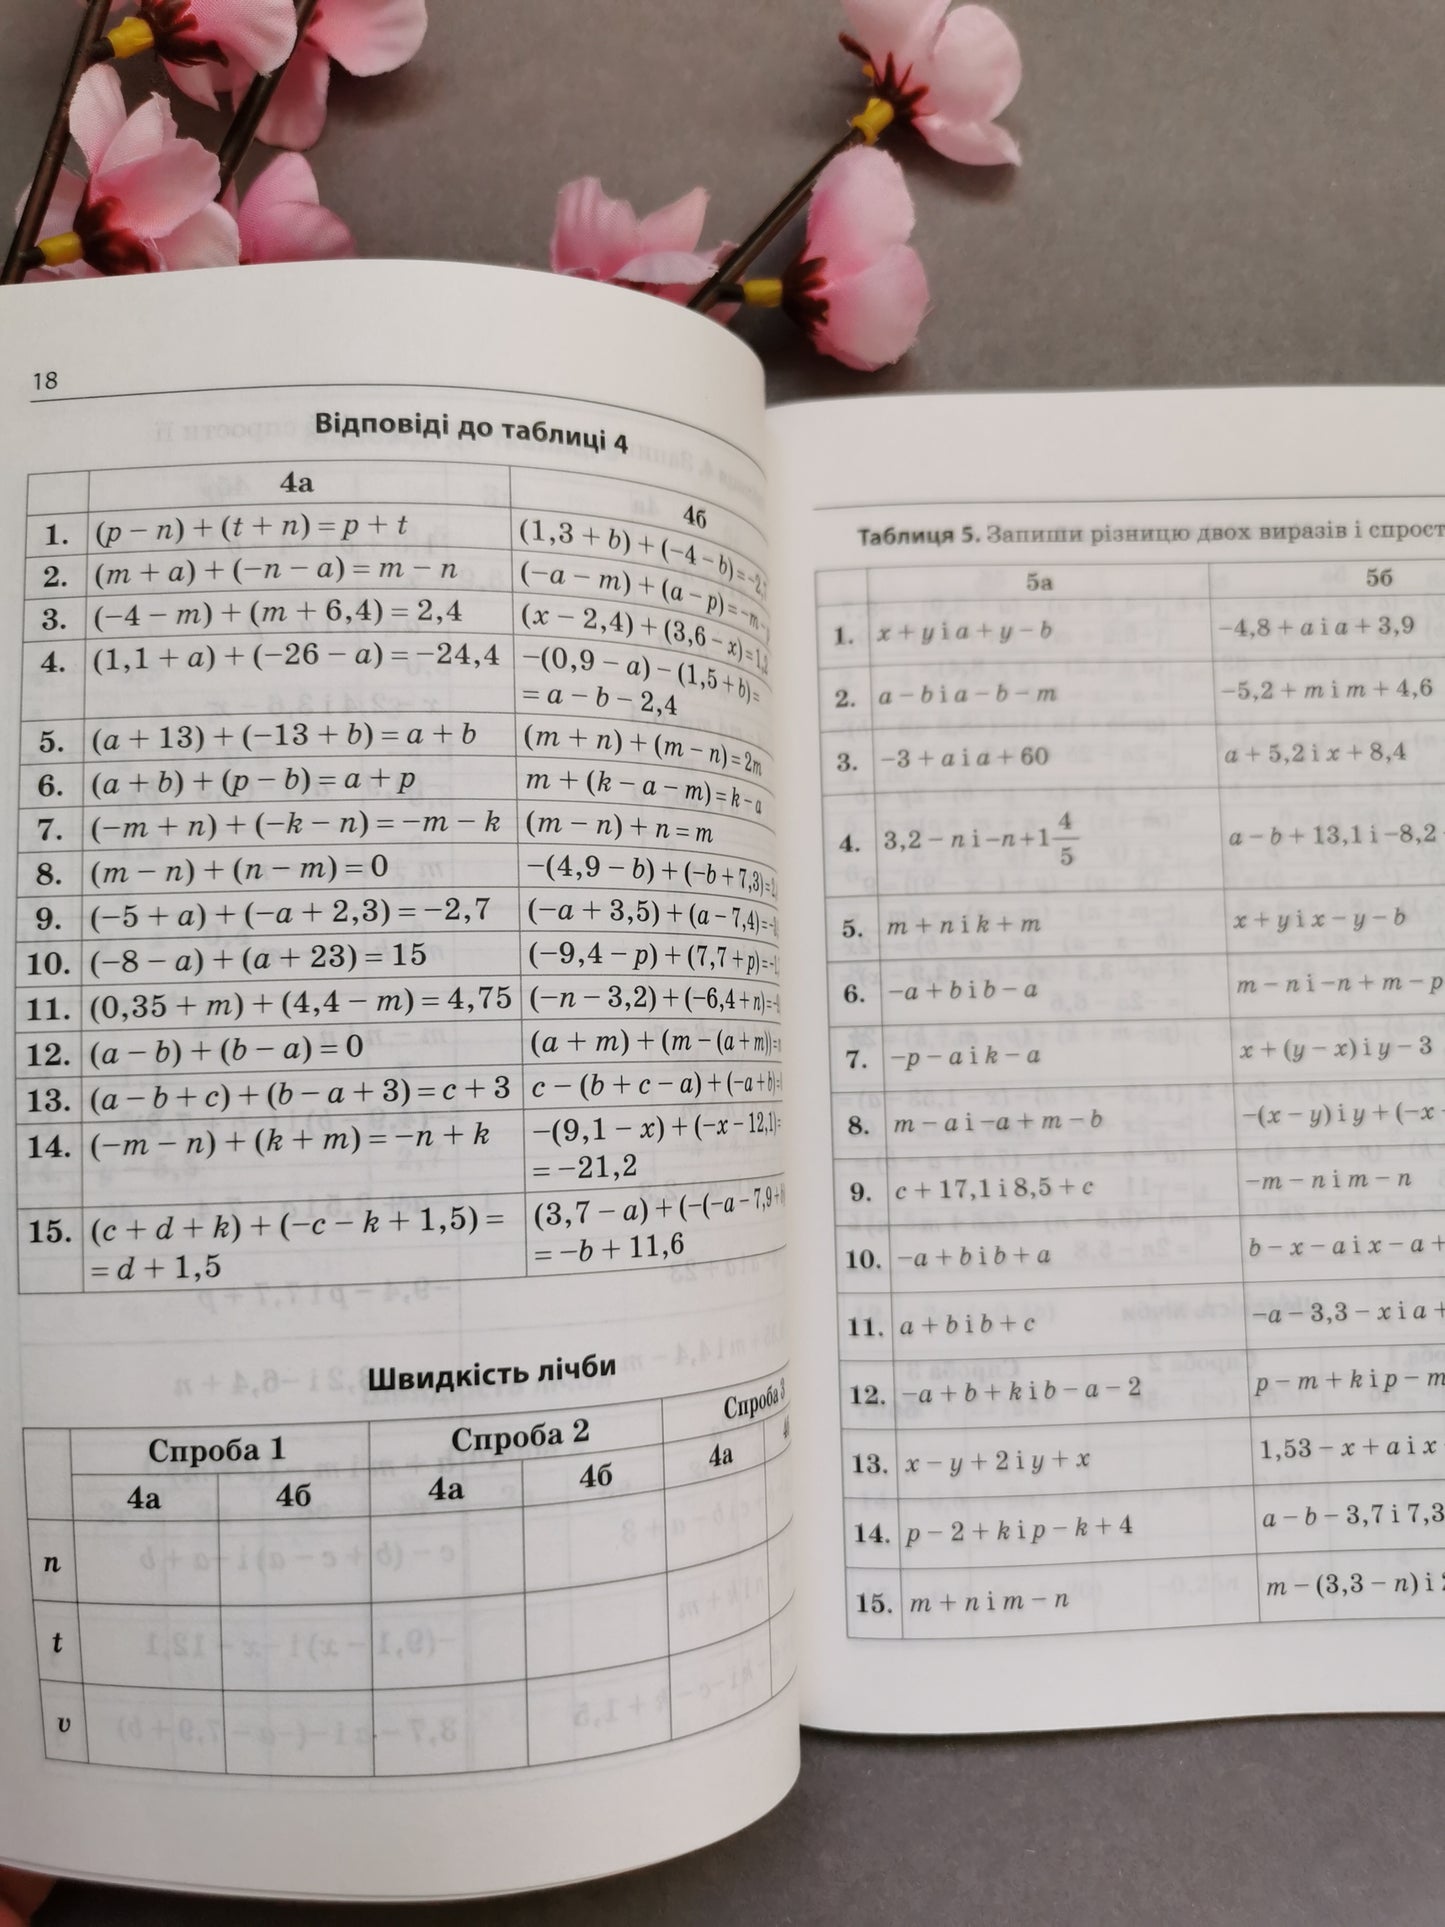 18
Відповіді до таблиці 4
4а 4б
1. (p − n) + (t + n) = p + t (1,3 + b) + (−4 − b) = −2,
2. (m + a) + (−n − a) = m − n (−a − m) + (a − p) = −m −
3. (−4 − m) + (m + 6,4) = 2,4 (x − 2,4) + (3,6 − x) = 1,2
4. (1,1 + a) + (−26 − a) = −24,4 −(0,9 − a) − (1,5 + b) =
= a − b − 2,4
5. (a + 13) + (−13 + b) = a + b (m + n) + (m − n) = 2m
6. (a + b) + (p − b) = a + p m + (k − a − m) = k − a
7. (−m + n) + (−k − n) = −m − k (m − n) + n = m
8. (m − n) + (n − m) = 0 −(4,9 − b) + (−b + 7,3) = 2,
9. (−5 + a) + (−a + 2,3) = −2,7 (−a + 3,5) + (a − 7,4) = −
10. (−8 − a) + (a + 23) = 15 (−9,4 − p) + (7,7 + p) = −1,
11. (0,35 + m) + (4,4 − m) = 4,75 (−n − 3,2) + (−6,4 + n) = −
12. (a − b) + (b − a) = 0 (a + m) + (m − (a + m)) =
13. (a − b + c) + (b − a + 3) = c + 3 c − (b + c − a) + (−a + b) =
14. (−m − n) + (k + m) = −n + k −(9,1 − x) + (−x − 12,1) =
= −21,2
15. (c + d + k) + (−c − k + 1,5) = (3,7 − a) + (−(−a − 7,9 +
= d + 1,5 = −b + 11,6
Швидкість лічби
Спроба 1 Спроба 2 Спроба 3
4а 4б 4а 4б 4а
n
t
v
Таблиця 5. Запиши різницю двох виразів і спрост
5а 5б
1. x + y і a + y − b −4,8 + a і a + 3,9
2. a − b і a − b − m −5,2 + m і m + 4,6
3. −3 + a і a + 60 a + 5,2 і x + 8,4
4. 3,2 − n і −n + 1 4/5 a − b + 13,1 і −8,2
5. m + n і k + m x + y і x − y − b
6. −a + b і b − a m − n і −n + m − p
7. −p − a і k − a x + (y − x) і y − 3
8. m − a і −a + m − b −(x − y) і y + (−x
9. c + 17,1 і 8,5 + c −m − n і m − n
10. −a + b і b + a b − x − a і x − a +
11. a + b і b + c −a − 3,3 − x і a +
12. −a + b + k і b − a − 2 p − m + k і p − m
13. x − y + 2 і y + x 1,53 − x + a і x
14. p − 2 + k і p − k + 4 a − b − 3,7 і 7,3
15. m + n і m − n m − (3,3 − n) і